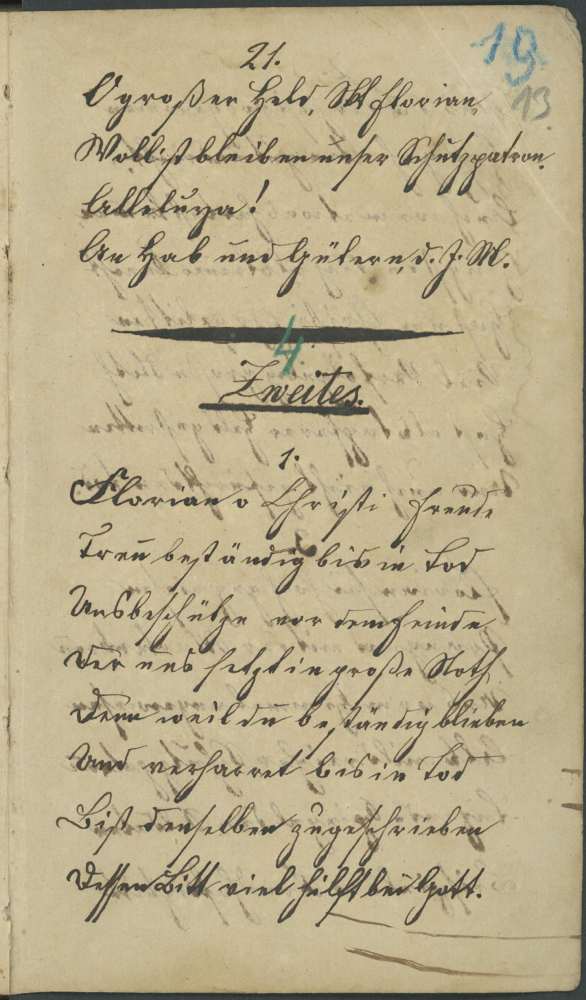 19
13
21.
O großer Held, Skt Florian,
Wollst bleiben unser Schutzpatron.
Alleluya!
An Hab und Gütern, d. J. M.
4
Zweites.
1.
Florian o Christi Freude
Treu beständig bis in Tod
Uns beschütze vor dem Feinde
Der uns setzt in große Noth,
Denn weil du beständig blieben
Und verharret bis in Tod
Bist denselben zugeschrieben
Dessen Bitt viel hilft bei Gott.